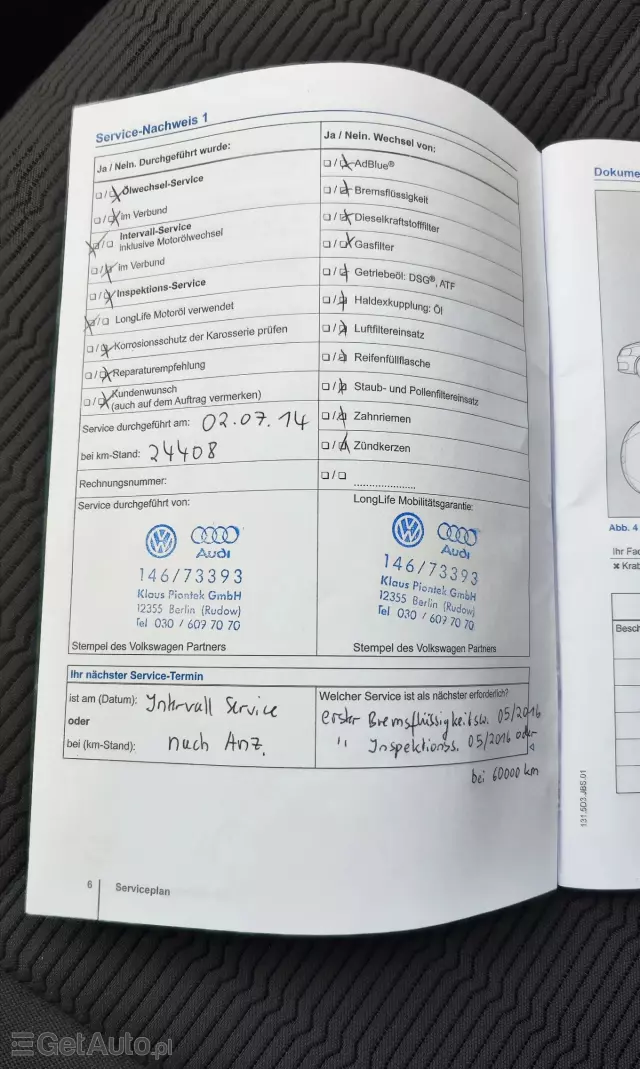 Service-Nachweis 1
Ja / Nein. Durchgeführt wurde:
Ölwechsel-Service
im Verbund
Intervall-Service
Inklusive Motorölwechsel
im Verbund
Inspektions-Service
LongLife Motoröl verwendet
Korrosionsschutz der Karosserie prüfen
Reparaturempfehlung
Kundenwunsch
(auch auf dem Auftrag vermerken)
Service durchgeführt am: 02.07.14
bei km-Stand: 24408
Rechnungsnummer:
Ja / Nein. Wechsel von:
AdBlue®
Bremsflüssigkeit
Dieselkraftstofffilter
Gasfilter
Getriebeöl: DSG®, ATF
Haldexkupplung: Öl
Luftfiltereinsatz
Reifenfüllflasche
Staub- und Pollenfiltereinsatz
Zahnriemen
Zündkerzen
Service durchgeführt von:
Audi
146/73393
Klaus Piontek GmbH
12355 Berlin (Rudow)
Tel 030 / 609 70 70
Stempel des Volkswagen Partners
LongLife Mobilitätsgarantie:
Audi
146/73393
Klaus Piontek GmbH
12355 Berlin (Rudow)
Tel 030 / 609 70 70
Stempel des Volkswagen Partners
Ihr nächster Service-Termin
ist am (Datum): Intervall Service
oder
bei (km-Stand): nach Anz.
Welcher Service ist als nächster erforderlich?
erster Bremsflüssigkeitsw. 05/2016
" Inspektionss. 05/2016 oder
bei 60000 km
6 Serviceplan
Dokume
Abb. 4
Ihr Fac
Krat
Besch
131.5D3.JBS.01
GetAuto.pl